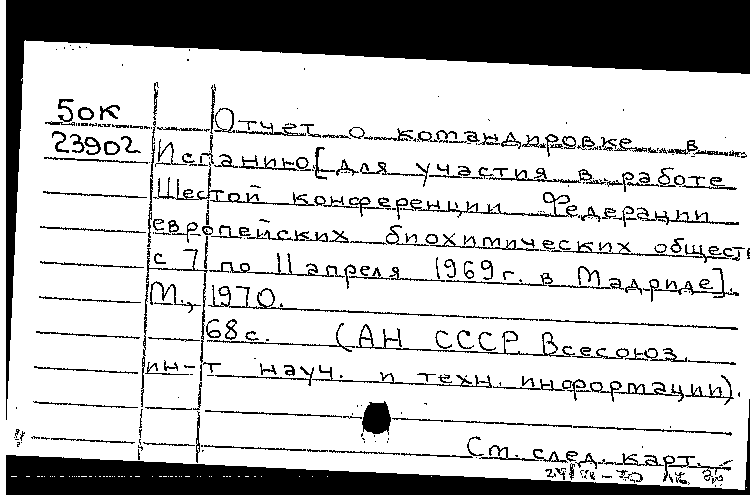 50К
23902
Отчет о командировке в
Испанию [для участия в работе
Шестой конференции Федерации
европейских биохимических обществ
с 7 по 11 апреля 1969 г. в Мадриде].
М., 1970.
68 с. (АН СССР. Всесоюз.
ин-т науч. и техн. информации).
См. след. карт.